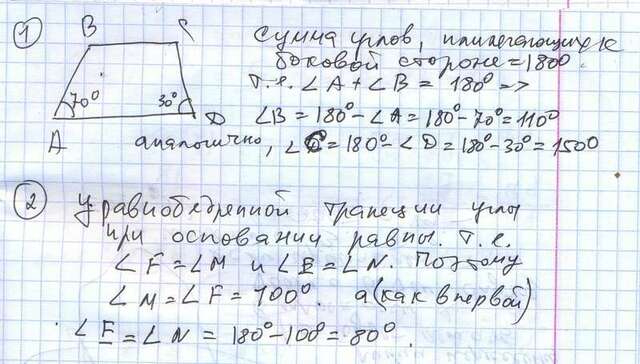 1
B C
70° 30°
A D
сумма углов, прилегающих к
боковой стороне = 180°.
т.е. ∠A + ∠B = 180° =>
∠B = 180° - ∠A = 180° - 70° = 110°
аналогично, ∠C = 180° - ∠D = 180° - 30° = 150°
2 у равнобедренной трапеции углы
при основании равны. т.е.
∠F = ∠M и ∠E = ∠N. Поэтому
∠M = ∠F = 100°. а (как в первой)
∠E = ∠N = 180° - 100° = 80°.